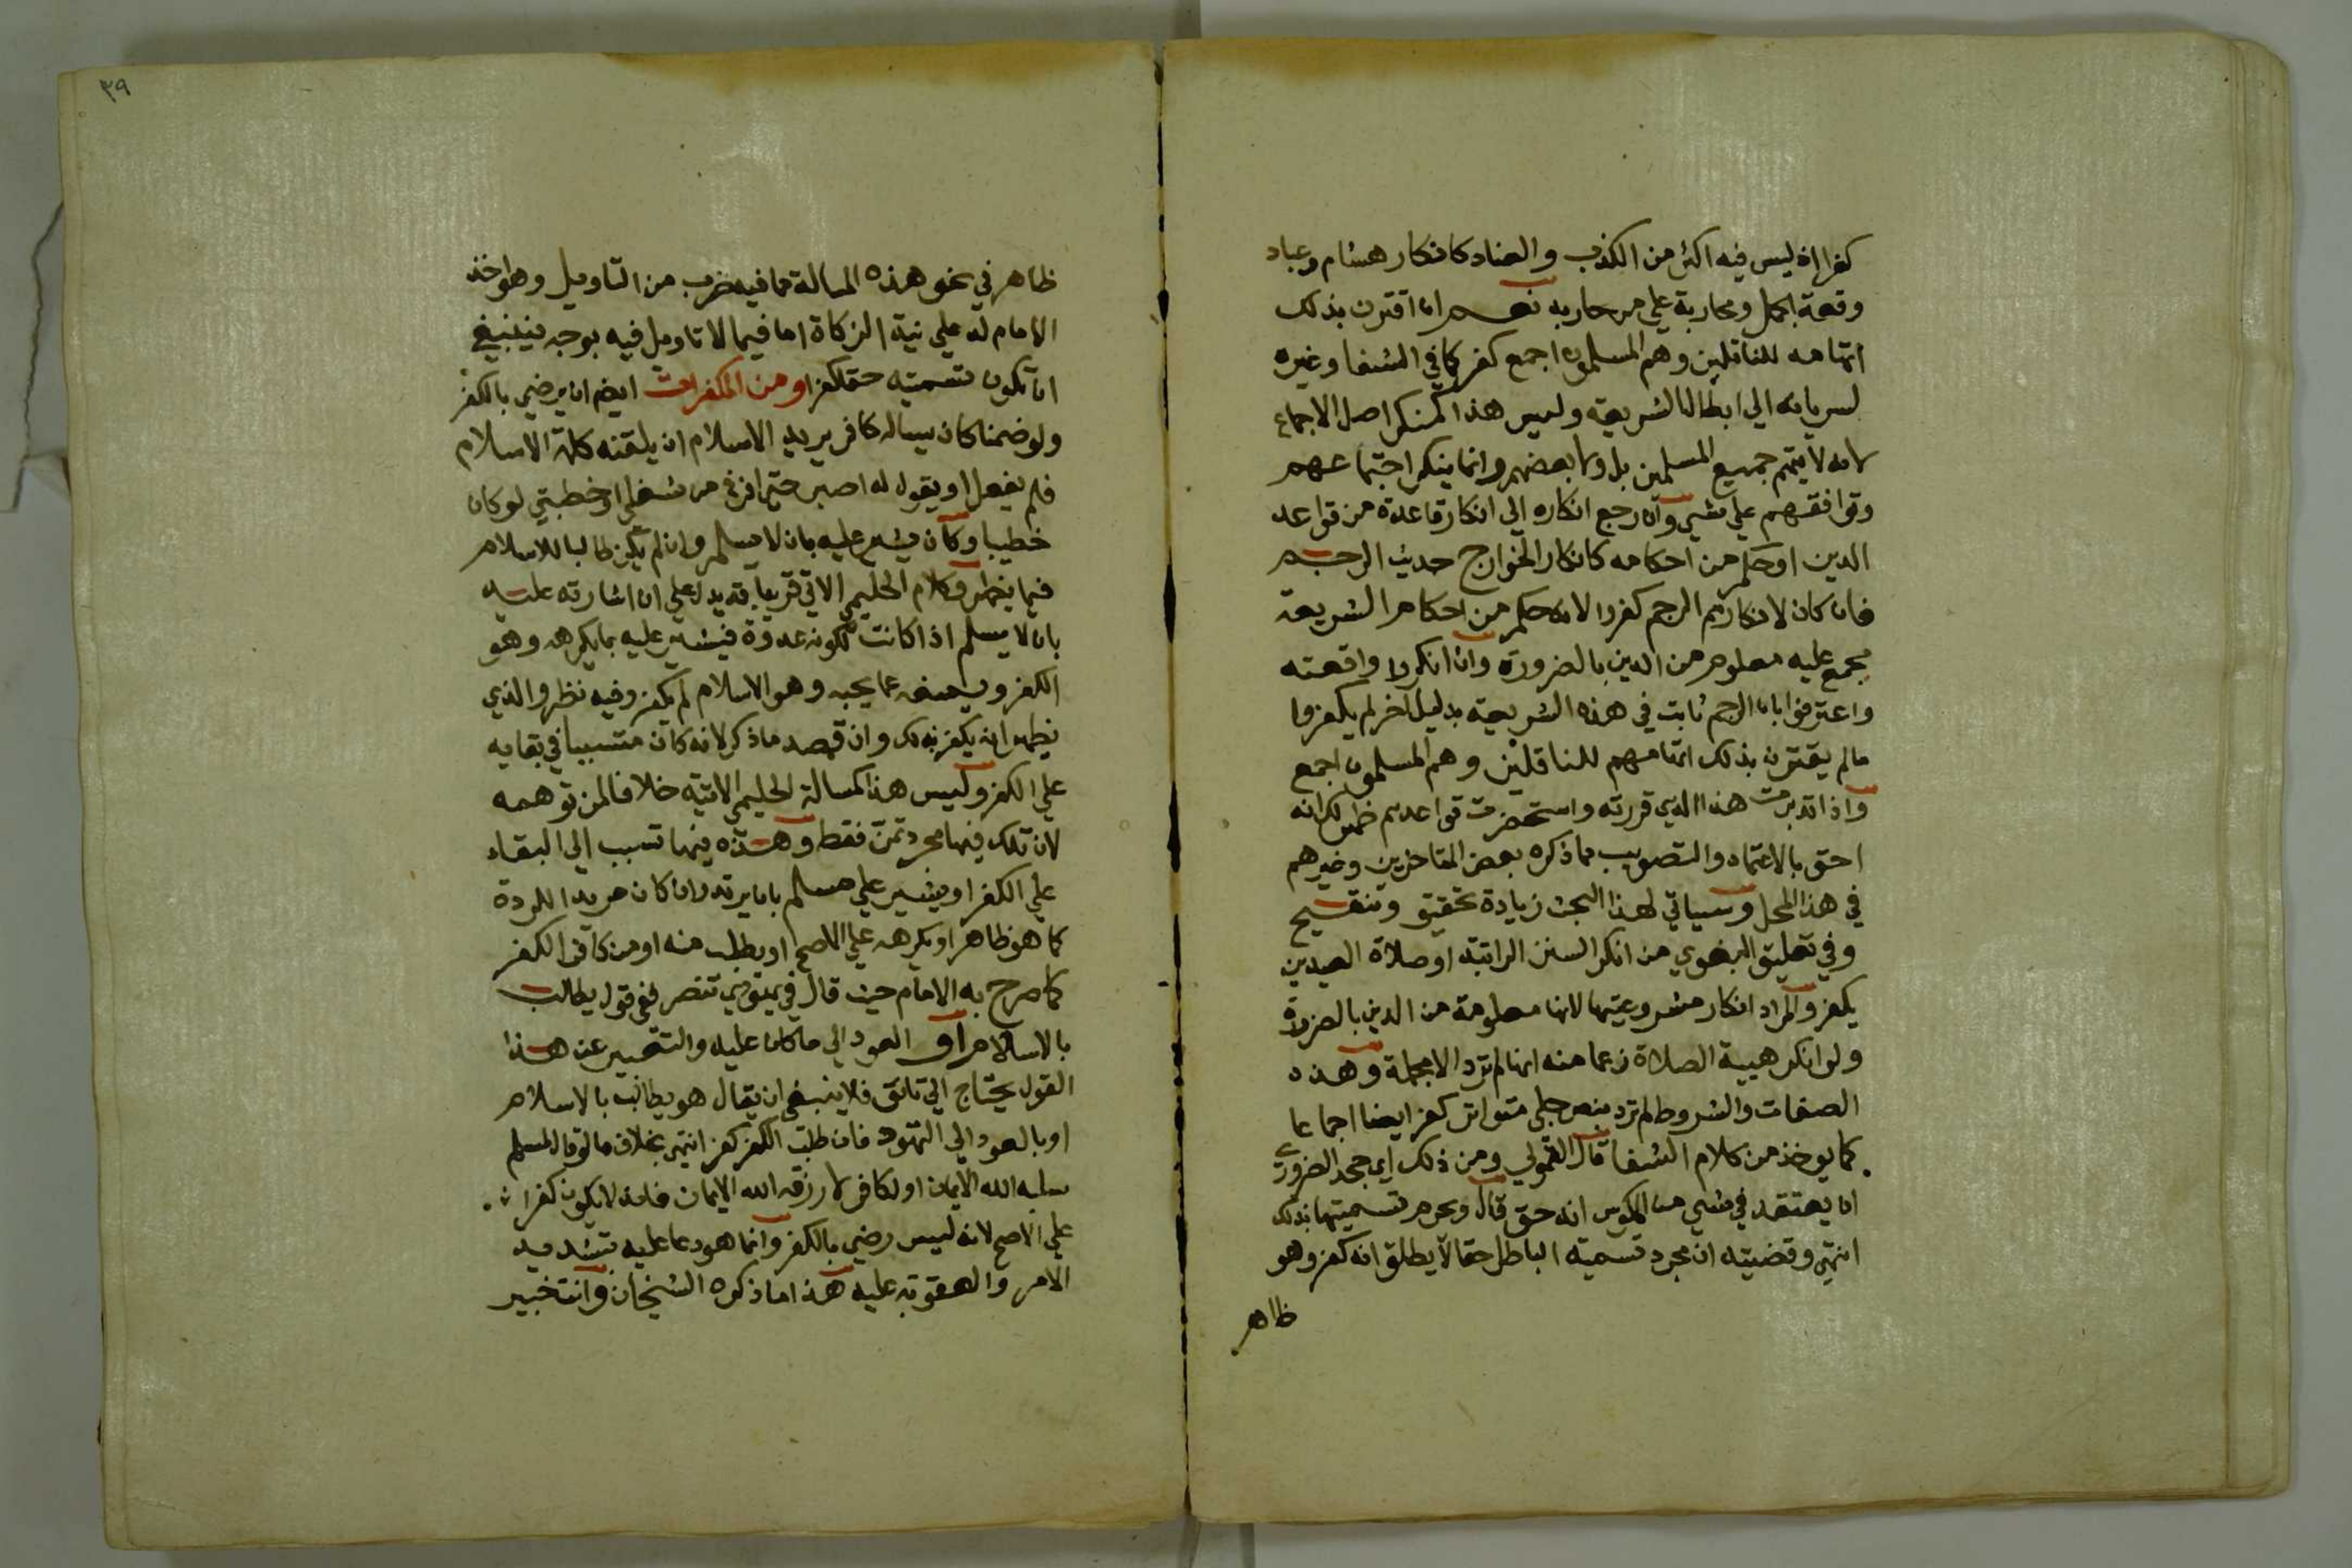 كفرا اذ ليس فيه اكثر من الكذب والعناد كانكار هشام وعباد
وقعة الجمل ومحاربة علي من حاربه نعم ان اقترن بذلك
اتهامه للناقلين وهم المسلمون اجمع كفر كما في الشفا وغيره
لسريانه الي ابطال الشريعة وليس هذا كمنكر اصل الاجماع
لانه لا يتهم جميع المسلمين بل ولا بعضهم وانما ينكر اجتماعهم
وتوافقهم علي شي وان رجع انكاره الي انكار قاعدة من قواعد
الدين او حكم من احكامه كانكار الخوارج حديث الرجم
فان كان لانكارهم الرجم كفروا لانه حكم من احكام الشريعة
مجمع عليه معلوم من الدين بالضرورة وان انكروا واقعته
واعترفوا بان الرجم ثابت في هذه الشريعة بدليل اخر لم يكفروا
مالم يقترن بذلك اتهامهم للناقلين وهم المسلمون اجمع
واذا تدبرت هذا الذي قررته واستحضرت قواعدهم ظهر لك انه
احق بالاعتماد والتصويب مما ذكره بعض المتاخرين وغيرهم
في هذا المحل وسياتي لهذا البحث زيادة تحقيق وتنقيح
وفي تعليق البغوي من انكر السنن الراتبة او صلاة العيدين
يكفر والمراد انكار مشروعيتها لانها معلومة من الدين بالضرورة
ولو انكر هيية الصلاة زعما منه انها لم ترد الا مجملة وهذه
الصفات والشروط لم ترد بنص جلي متواتر كفر ايضا اجماعا
كما يوخذ من كلام الشفا قال القمولي ومن ذلك اي جحد الضروري
ان يعتقد في شي من المكوس انه حق قال ويحرم تسميتها بذلك
انتهي وقضيته ان مجرد تسمية الباطل حقا لا يطلق انه كفر وهو
ظاهر
٣٩
ظاهر في نحو هذه المسالة مما فيه ضرب من التاويل وهو اخذ
الامام له علي نية الزكاة اما فيما لا تاويل فيه بوجه فينبغي
ان تكون تسميته حقا كفرا ومن المكفرات ايضم ان يرضي بالكفر
ولو ضمنا كان يساله كافر يريد الاسلام ان يلقنه كلمة الاسلام
فلم يفعل او يقول له اصبر حتي افرغ من شغلي او خطبتي لو كان
خطيبا وكان يشير عليه بان لا يسلم وان لم يكن طالبا للاسلام
فيما يظهر وكلام الحليمي الاتي قريبا قد يدل علي ان اشارته عليه
بان لا يسلم اذا كانت لكونه عدوه فيشير عليه بما يكرهه وهو
الكفر ويمنعه عما يحبه وهو الاسلام لم يكفر وفيه نظر والذي
يظهر انه يكفر بذلك وان قصد ما ذكر لانه كان متسببا في بقايه
علي الكفر وليس هذا كمسالة الحليمي الاتية خلافا لمن توهمه
لان تلك فيها مجرد تمن فقط وهذه فيها تسبب الي البقاء
علي الكفر او يشير علي مسلم بان يرتد وان كان مريدا للردة
كما هو ظاهر او يكرهه علي الاصح او يطلب منه او من كافر الكفر
كما صرح به الامام حيث قال في يهودي تنصر ففي قول يطالب
بالاسلام او العود الي ما كان عليه والتعبير عن هذا
القول يحتاج الي تانق فلا ينبغي ان يقال هو يطالب بالاسلام
او بالعود الي التهود فان طلب الكفر كفر انتهي بخلاف ما لو قال لمسلم
سلبه الله الايمان او لكافر لا رزقه الله الايمان فانه لا يكون كفرا
علي الاصح لانه ليس رضي بالكفر وانما هو دعا عليه بتشديد
الامر والعقوبة عليه هذا ما ذكره الشيخان وانت خبير